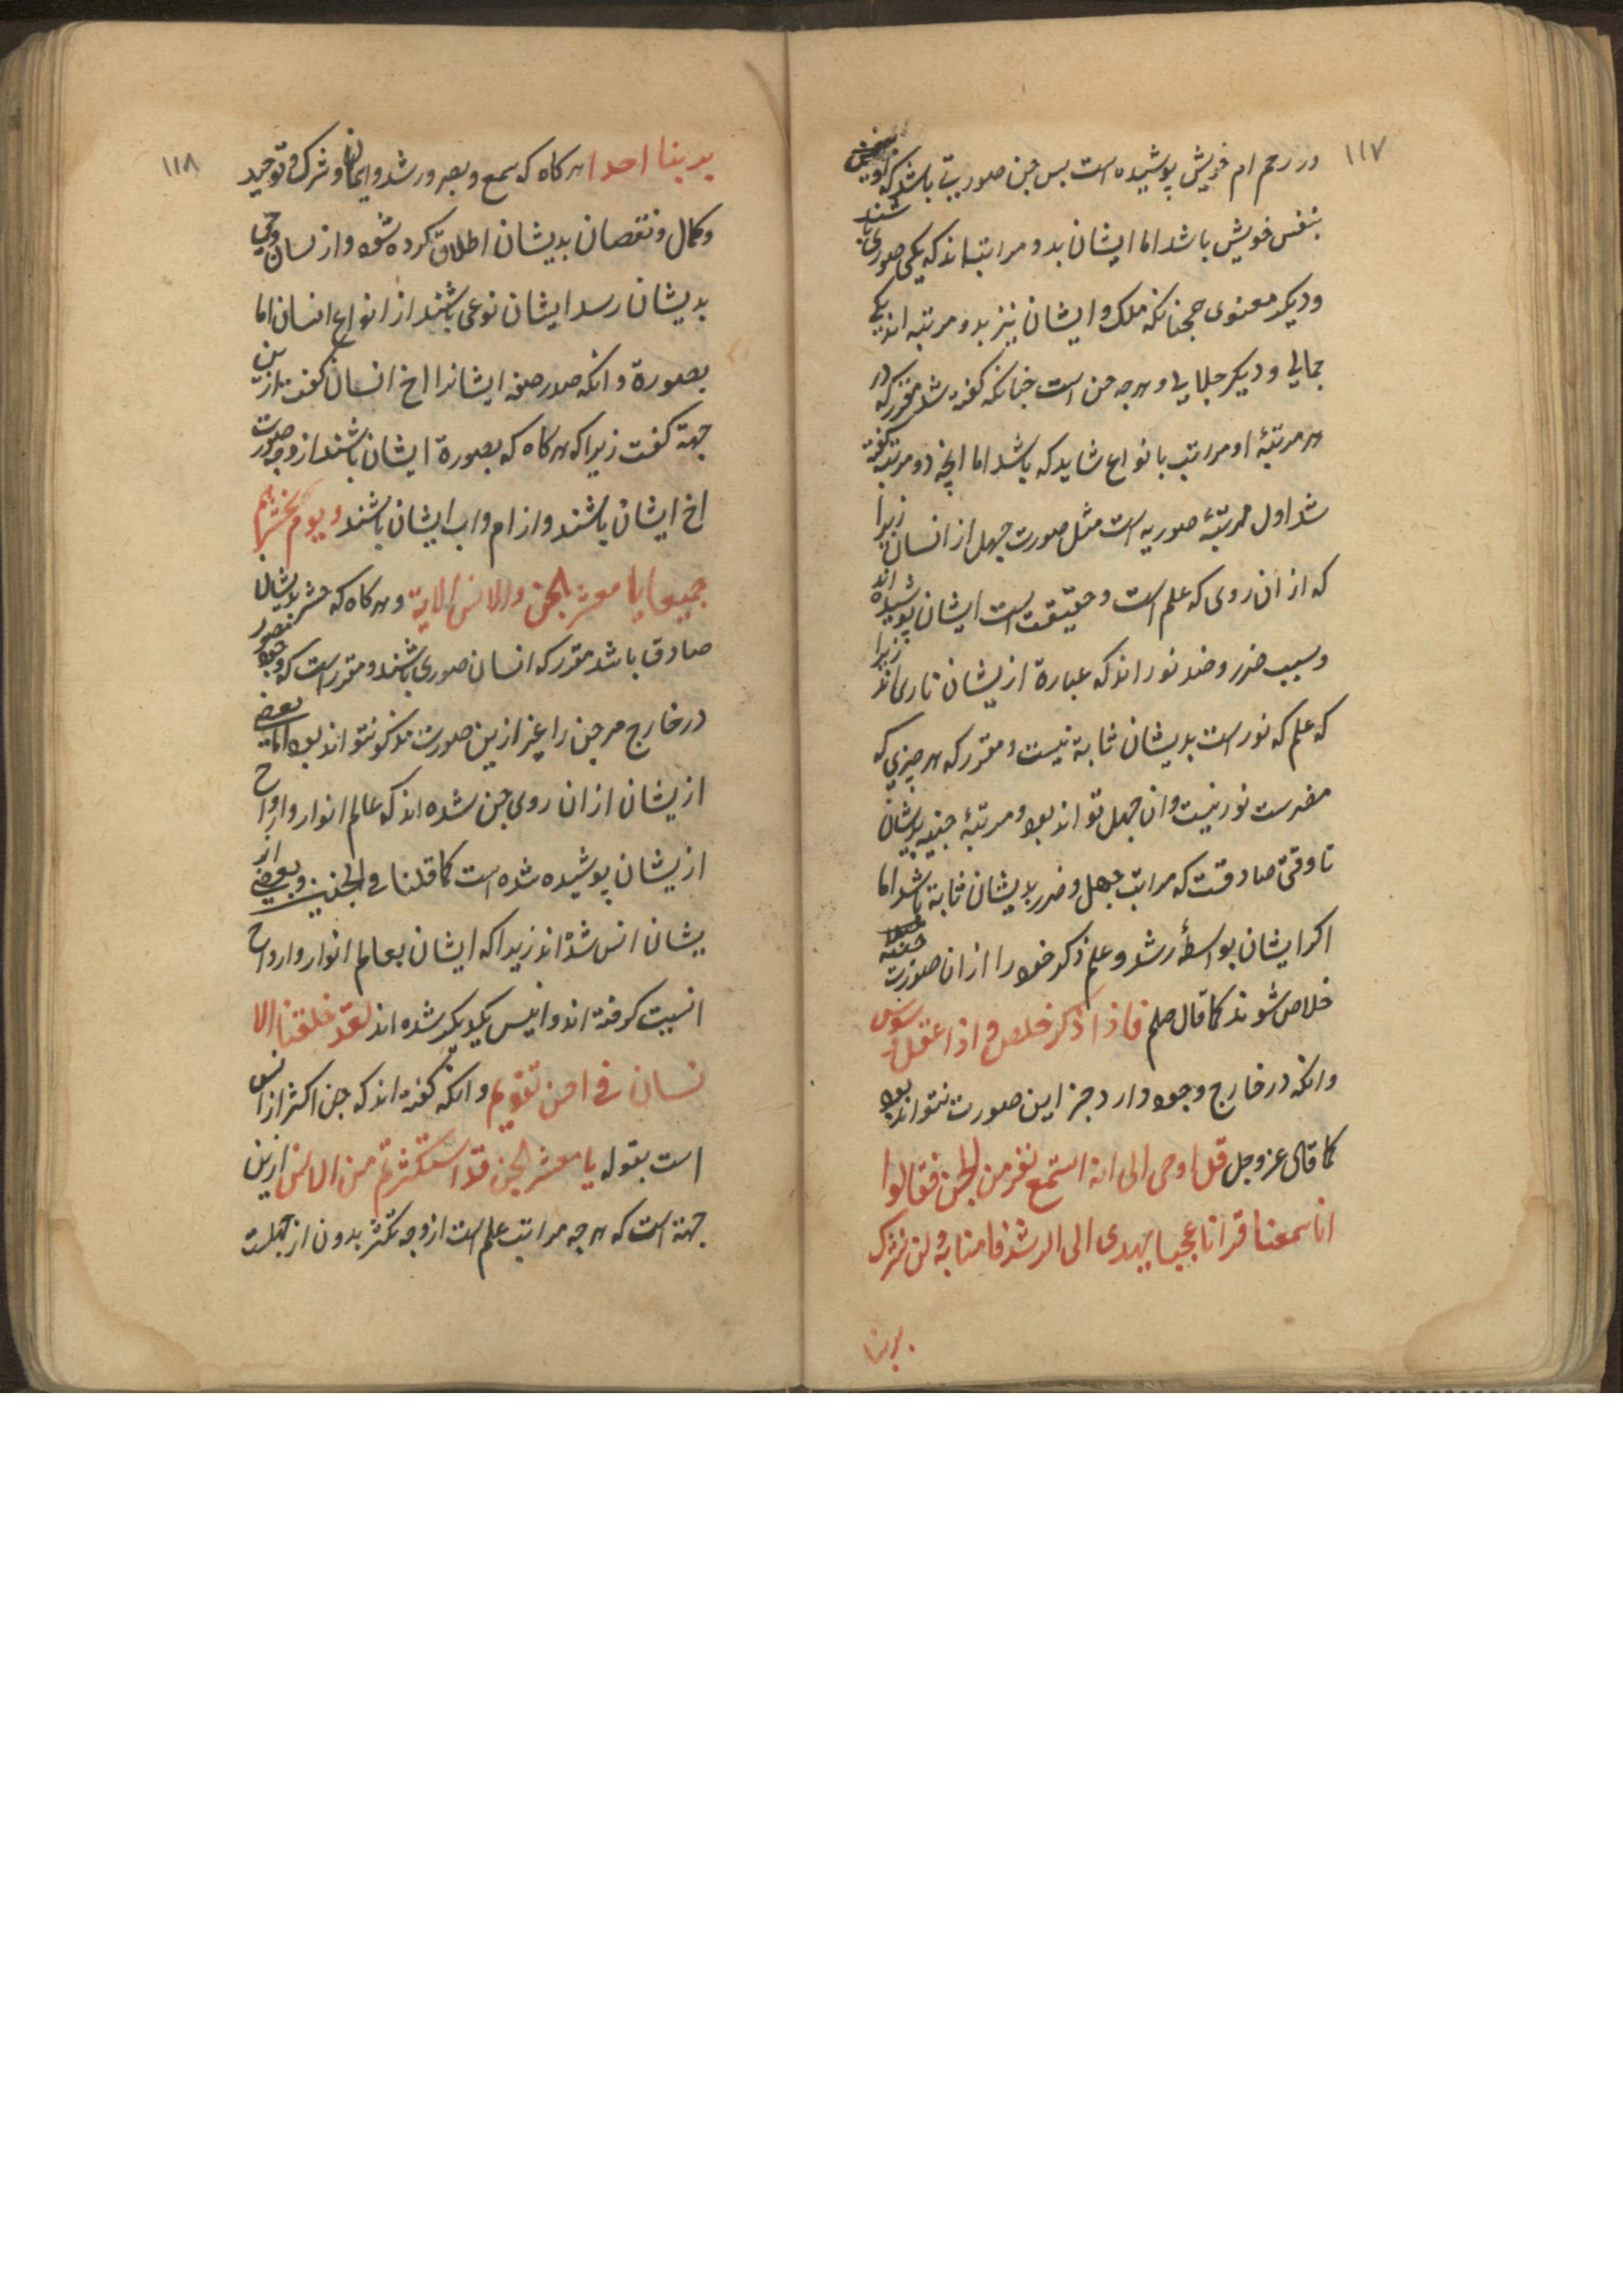 ١١٧
در رحم ام خویش پوشیده است پس جن صوریتی باشد که او
بنفس خویش باشد اما ایشان بدو مراتب اند که یکی صوری باشند
و دیکر معنوی همجنانکه ملک و ایشان نیز بدو مرتبه اند یکی
جمالی و دیکر جلالی و هرجه جن است جنانکه کفته شد مقرر که در
هر مرتبهٔ او مراتب بانواع شاید که باشد اما انچه دو مرتبه کفته
شد اول مرتبهٔ صوریه است مثل صورت جهل از انسان زیرا
که از ان روی که علم است و حقیقت است ایشان پوشیده اند
و سبب ضرر و ضد نور اند که عبارة ازیشان ناری اند زیرا
که علم که نور است بدیشان ثابة نیست و مقرر که هر چیزی که
مضرست نور نیست و ان جهل تواند بود و مرتبهٔ جنیه بدیشان
تا وقتی صادقست که مراتب جهل و ضرر بدیشان ثابة باشد اما
اکر ایشان بواسطهٔ رشد و علم ذکر خود را از ان صورت جنیه
خلاص شوند کما قال صلم فاذا ذکر خلص و اذا غفل وسوس
و انکه در خارج وجود دارد جز این صورت نتواند بود
کما قال عز و جل قل اوحی الی انه استمع نفر من الجن فقالوا
انا سمعنا قرانا عجبا یهدی الی الرشد فامنا به ولن نشرک
بربنا
١١٨
بربنا احدا هر کاه که سمع و بصر و رشد و ایمان و شرک و توحید
و کمال و نقصان بدیشان اطلاق کرده شود و از لسان وحی
بدیشان رسد ایشان نوعی باشند از انواع انسان اما
بصورة و انکه صدر صفه ایشانرا اخ انسان کفت ازین
جهة کفت زیرا که هر کاه که بصورة ایشان باشند از وجه صورت
اخ ایشان باشند و از ام و اب ایشان باشند و یوم نحشرهم
جمیعا یا معشر الجن والانس الایة و هر کاه که حشر بدیشان
صادق باشد مقرر که انسان صوری باشند و مقرر است که وجود
در خارج مر جن را غیر ازین صورت مذکور نتواند بود اما بعضی
ازیشان از ان روی جن شده اند که عالم انوار و ارواح
ازیشان پوشیده شده است کما قلنا فی الجنین و بعضی از
یشان انس شده اند زیرا که ایشان بعالم انوار و ارواح
انسیت کرفته اند و انیس یکدیکر شده اند لقد خلقنا الا
نسان فی احسن تقویم و انکه کفته اند که جن اکثر از انس
است بقوله یا معشر الجن قد استکثرتم من الانس ازین
جهة است که هرجه مراتب علم است از وجه تکثر بدون از جهلست